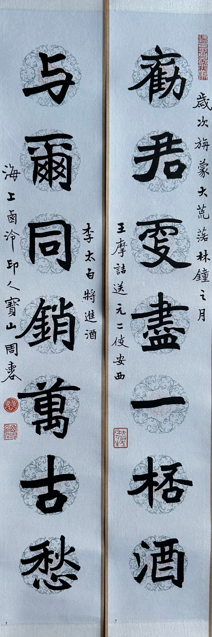 歲次旃蒙大荒落林鐘之月
勸君更盡一桮酒
王摩詰送元二使安西
李太白將進酒
与爾同銷萬古愁
海上西泠印人寶山周